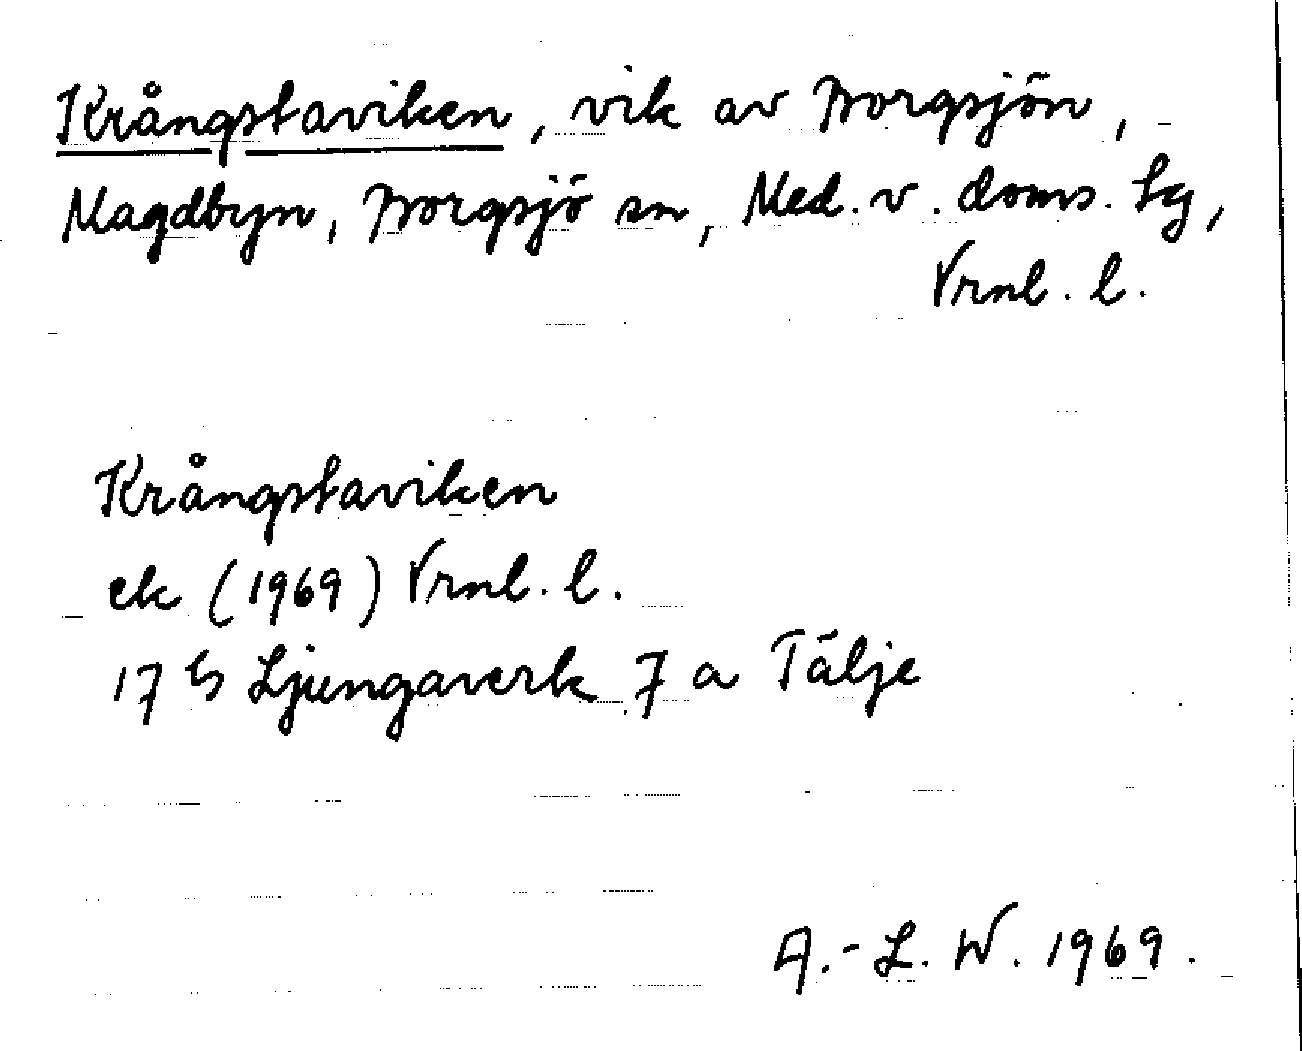 Krångstaviken, vik av Borgsjön,
Nagdbyn, Borgsjö sn, Med. v. doms. tg,
Vrnl. l.
Krångstaviken
ek (1969) Vrnl. l.
17 G Ljungaverk 7 a Tälje
A.-L. W. 1969.